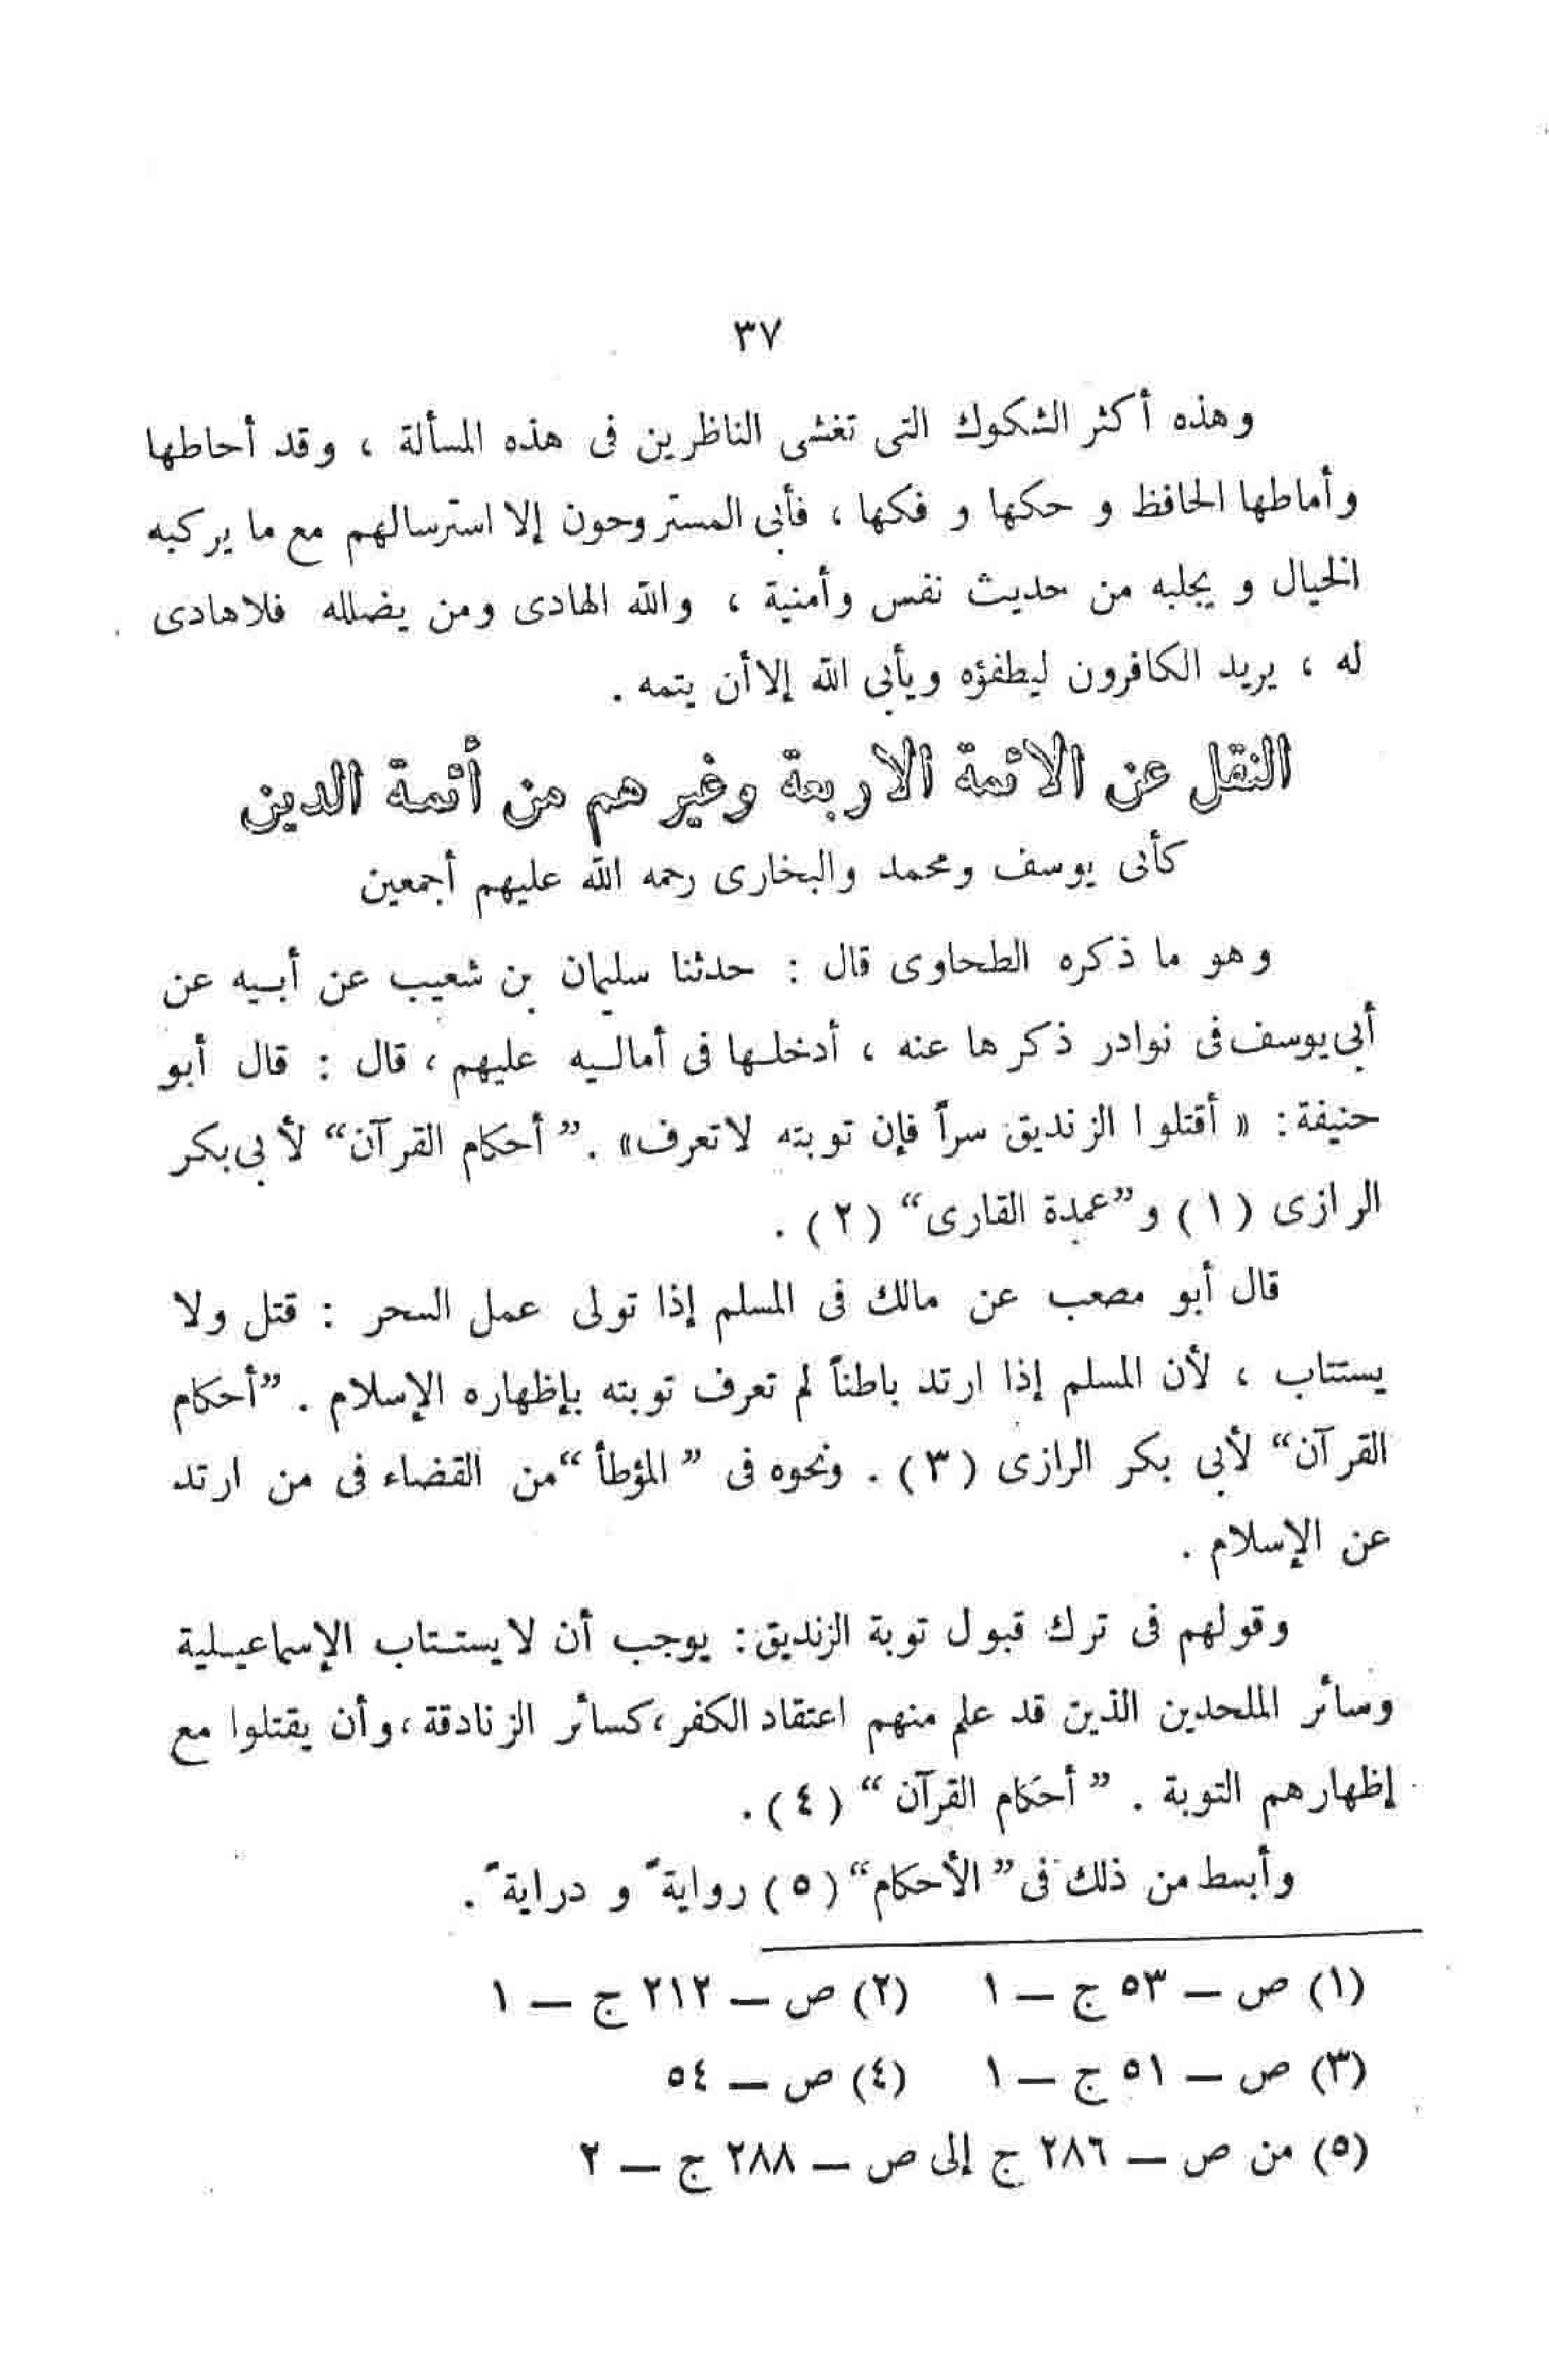 ٣٧
وهذه أكثر الشكوك التى تغشى الناظرين فى هذه المسألة ، وقد أحاطها
وأماطها الحافظ و حكها و فكها ، فأبى المستروحون إلا استرسالهم مع ما يركبه
الخيال و يجلبه من حديث نفس وأمنية ، والله الهادى ومن يضلله فلاهادى
له ، يريد الكافرون ليطفؤه ويأبى الله إلا أن يتمه .
النقل عن الائمة الاربعة وغيرهم من أئمة الدين
كأبى يوسف ومحمد والبخارى رحمه الله عليهم أجمعين
وهو ما ذكره الطحاوى قال : حدثنا سليمان بن شعيب عن أبيه عن
أبى يوسف فى نوادر ذكرها عنه ، أدخلها فى أماليه عليهم ، قال : قال أبو
حنيفة : « أقتلوا الزنديق سراً فإن توبته لاتعرف» . ”أحكام القرآن“ لأبى بكر
الرازى (١) و”عمدة القارى“ (٢) .
قال أبو مصعب عن مالك فى المسلم إذا تولى عمل السحر : قتل ولا
يستتاب ، لأن المسلم إذا ارتد باطناً لم تعرف توبته بإظهاره الإسلام . ”أحكام
القرآن“ لأبى بكر الرازى (٣) . ونحوه فى ”المؤطأ“ من القضاء فى من ارتد
عن الإسلام .
وقولهم فى ترك قبول توبة الزنديق: يوجب أن لايستتاب الإسماعيلية
وسائر الملحدين الذين قد علم منهم اعتقاد الكفر، كسائر الزنادقة، وأن يقتلوا مع
إظهارهم التوبة . ”أحكام القرآن“ (٤) .
وأبسط من ذلك فى ”الأحكام“ (٥) روايةً و درايةً .
(١) ص — ٥٣ ج — ١ (٢) ص — ٢١٢ ج — ١
(٣) ص — ٥١ ج — ١ (٤) ص — ٥٤
(٥) من ص — ٢٨٦ ج إلى ص — ٢٨٨ ج — ٢